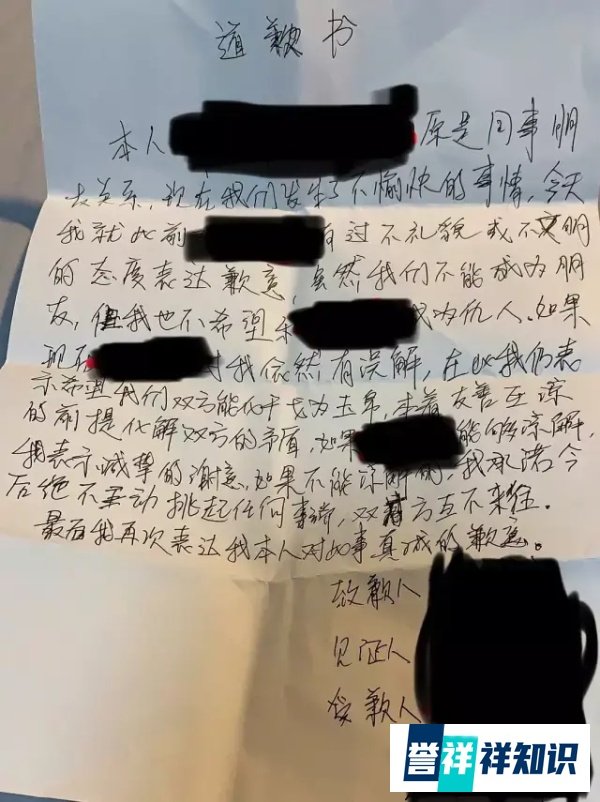 道歉书
本人 原是同事朋
友关系，现在我们发生了不愉快的事情，今天
我就此前 有过不礼貌或不文明
的态度表达歉意，虽然我们不能成为朋
友，但我也不希望和 成为仇人．如果
现在 对我依然有误解，在此我仍表
示希望我们双方能化干戈为玉帛，本着友善互谅
的前提化解双方的矛盾，如果 能够谅解，
我表示诚挚的谢意，如果不能谅解的，我承诺今
后绝不主动挑起任何事端，双方互不来往．
最后我再次表达我本人对此事真诚的歉意。
致歉人
见证人
受歉人
誉祥祥知识